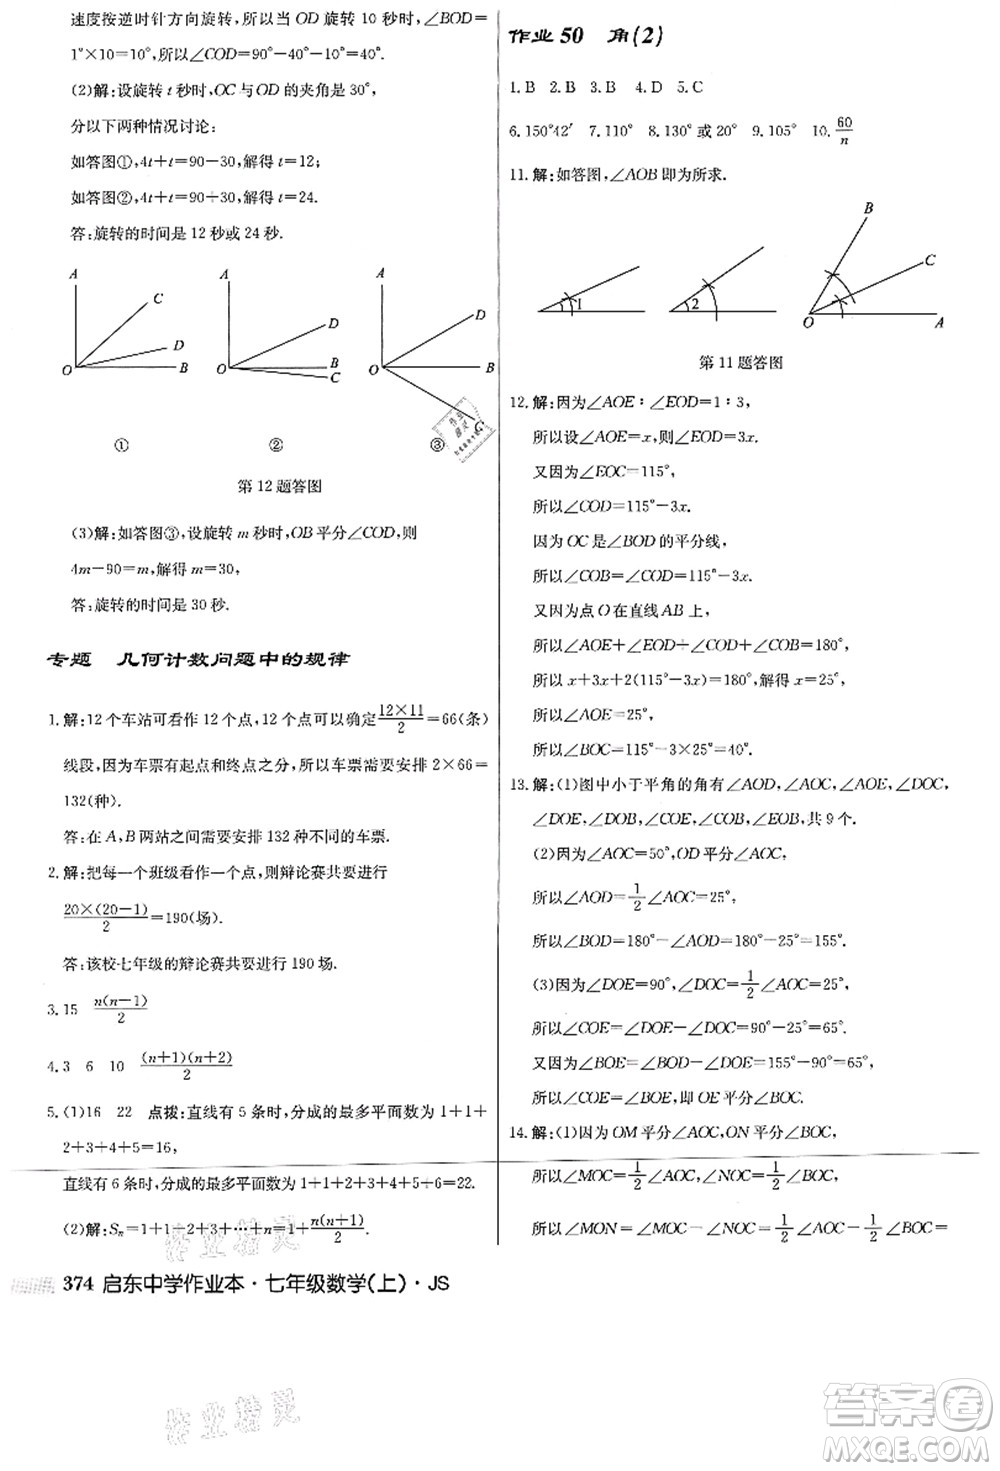 速度按逆时针方向旋转,所以当 OD 旋转 10 秒时,∠BOD=
1°×10=10°,所以∠COD=90°-40°-10°=40°.
(2)解:设旋转 t 秒时,OC 与 OD 的夹角是 30°,
分以下两种情况讨论:
如答图①,4t+t=90-30,解得 t=12;
如答图②,4t+t=90+30,解得 t=24.
答:旋转的时间是 12 秒或 24 秒.
A C D O B
①
A D O B C
②
A D O B C
③
第 12 题答图
(3)解:如答图③,设旋转 m 秒时,OB 平分∠COD,则
4m-90=m,解得 m=30,
答:旋转的时间是 30 秒.
专题 几何计数问题中的规律
1.解:12 个车站可看作 12 个点,12 个点可以确定$\frac{12×11}{2}$=66(条)
线段,因为车票有起点和终点之分,所以车票需要安排 2×66=
132(种).
答:在 A,B 两站之间需要安排 132 种不同的车票.
2.解:把每一个班级看作一个点,则辩论赛共要进行
$\frac{20×(20-1)}{2}$=190(场).
答:该校七年级的辩论赛共要进行 190 场.
3.15 $\frac{n(n-1)}{2}$
4.3 6 10 $\frac{(n+1)(n+2)}{2}$
5.(1)16 22 点拨:直线有 5 条时,分成的最多平面数为 1+1+
2+3+4+5=16,
直线有 6 条时,分成的最多平面数为 1+1+2+3+4+5+6=22.
(2)解:Sₙ=1+1+2+3+…+n=1+$\frac{n(n+1)}{2}$.
作业 50 角(2)
1.B 2.B 3.B 4.D 5.C
6.150°42′ 7.110° 8.130°或 20° 9.105° 10.$\frac{60}{n}$
11.解:如答图,∠AOB 即为所求.
1
2
B C O A
第 11 题答图
12.解:因为∠AOE∶∠EOD=1∶3,
所以设∠AOE=x,则∠EOD=3x.
又因为∠EOC=115°,
所以∠COD=115°-3x.
因为 OC 是∠BOD 的平分线,
所以∠COB=∠COD=115°-3x.
又因为点 O 在直线 AB 上,
所以∠AOE+∠EOD+∠COD+∠COB=180°,
所以 x+3x+2(115°-3x)=180°,解得 x=25°,
所以∠AOE=25°,
所以∠BOC=115°-3×25°=40°.
13.解:(1)图中小于平角的角有∠AOD,∠AOC,∠AOE,∠DOC,
∠DOE,∠DOB,∠COE,∠COB,∠EOB,共 9 个.
(2)因为∠AOC=50°,OD 平分∠AOC,
所以∠AOD=$\frac{1}{2}$∠AOC=25°,
所以∠BOD=180°-∠AOD=180°-25°=155°.
(3)因为∠DOE=90°,∠DOC=$\frac{1}{2}$∠AOC=25°,
所以∠COE=∠DOE-∠DOC=90°-25°=65°.
又因为∠BOE=∠BOD-∠DOE=155°-90°=65°,
所以∠COE=∠BOE,即 OE 平分∠BOC.
14.解:(1)因为 OM 平分∠AOC,ON 平分∠BOC,
所以∠MOC=$\frac{1}{2}$∠AOC,∠NOC=$\frac{1}{2}$∠BOC,
所以∠MON=∠MOC-∠NOC=$\frac{1}{2}$∠AOC-$\frac{1}{2}$∠BOC=
374 启东中学作业本·七年级数学(上)·JS
作业精灵
作业精灵
答案卷
MXQE.COM